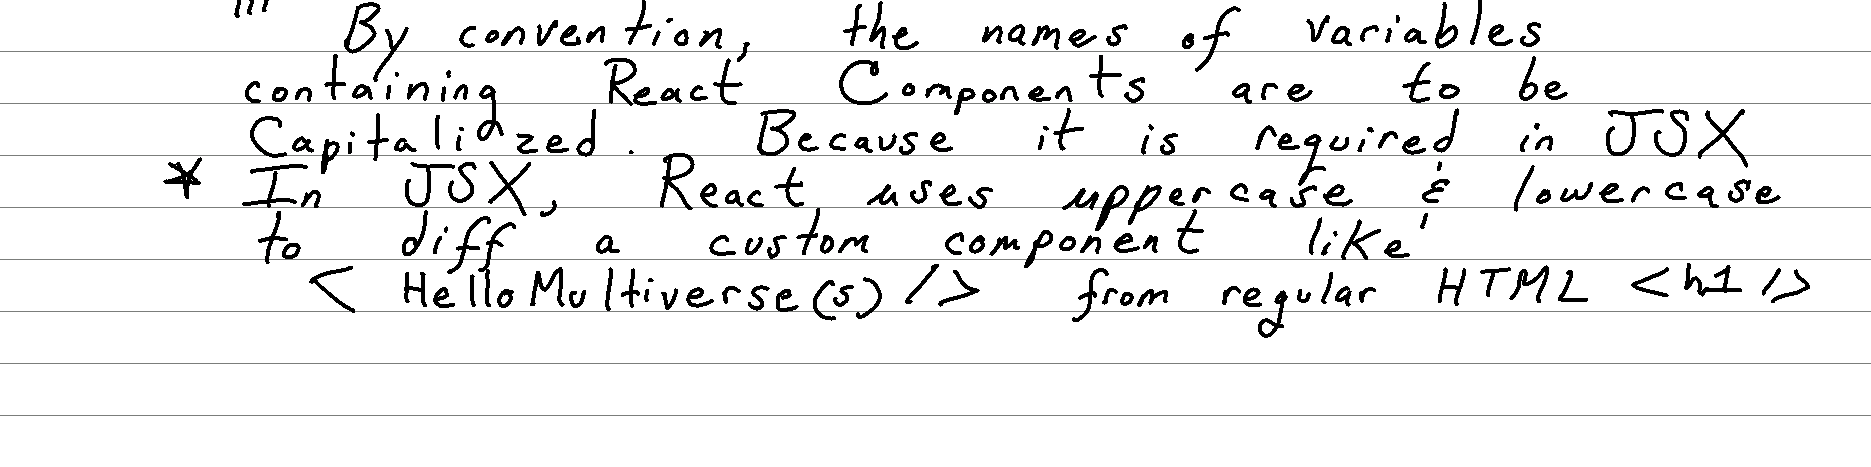 By convention, the names of variables
containing React Components are to be
Capitalized. Because it is required in JSX
* In JSX, React uses uppercase & lowercase
to diff a custom component like
< HelloMultiverse(s) /> from regular HTML <h1 />